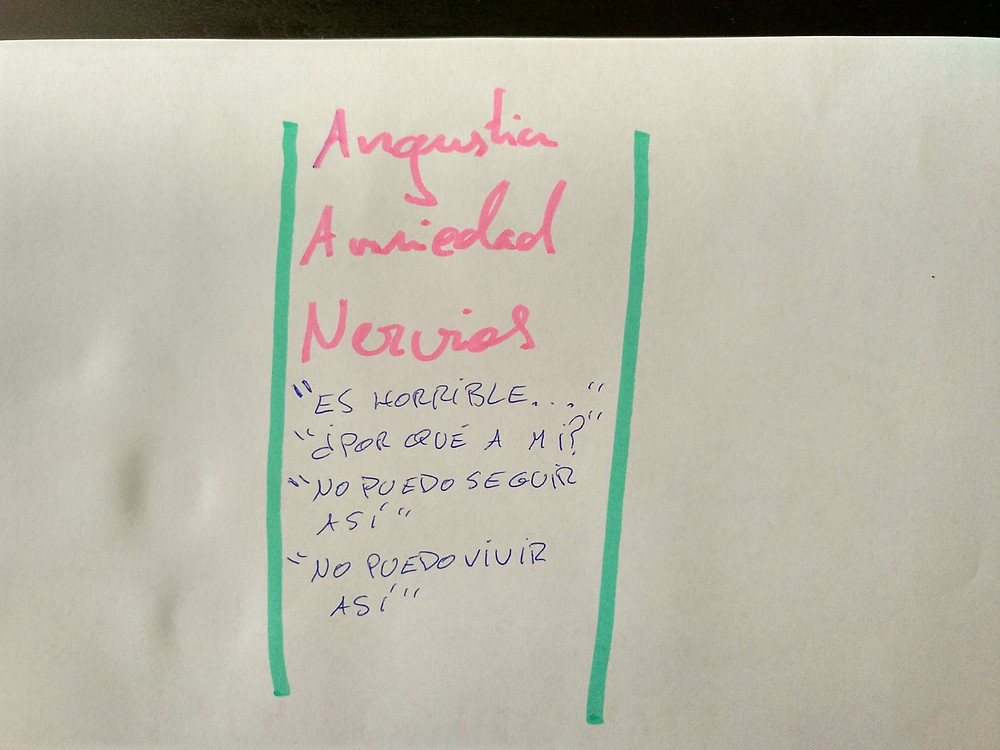 Angustia
Ansiedad
Nervios
"ES HORRIBLE..."
"¿POR QUÉ A MI?"
"NO PUEDO SEGUIR
ASÍ"
"NO PUEDO VIVIR
ASÍ"